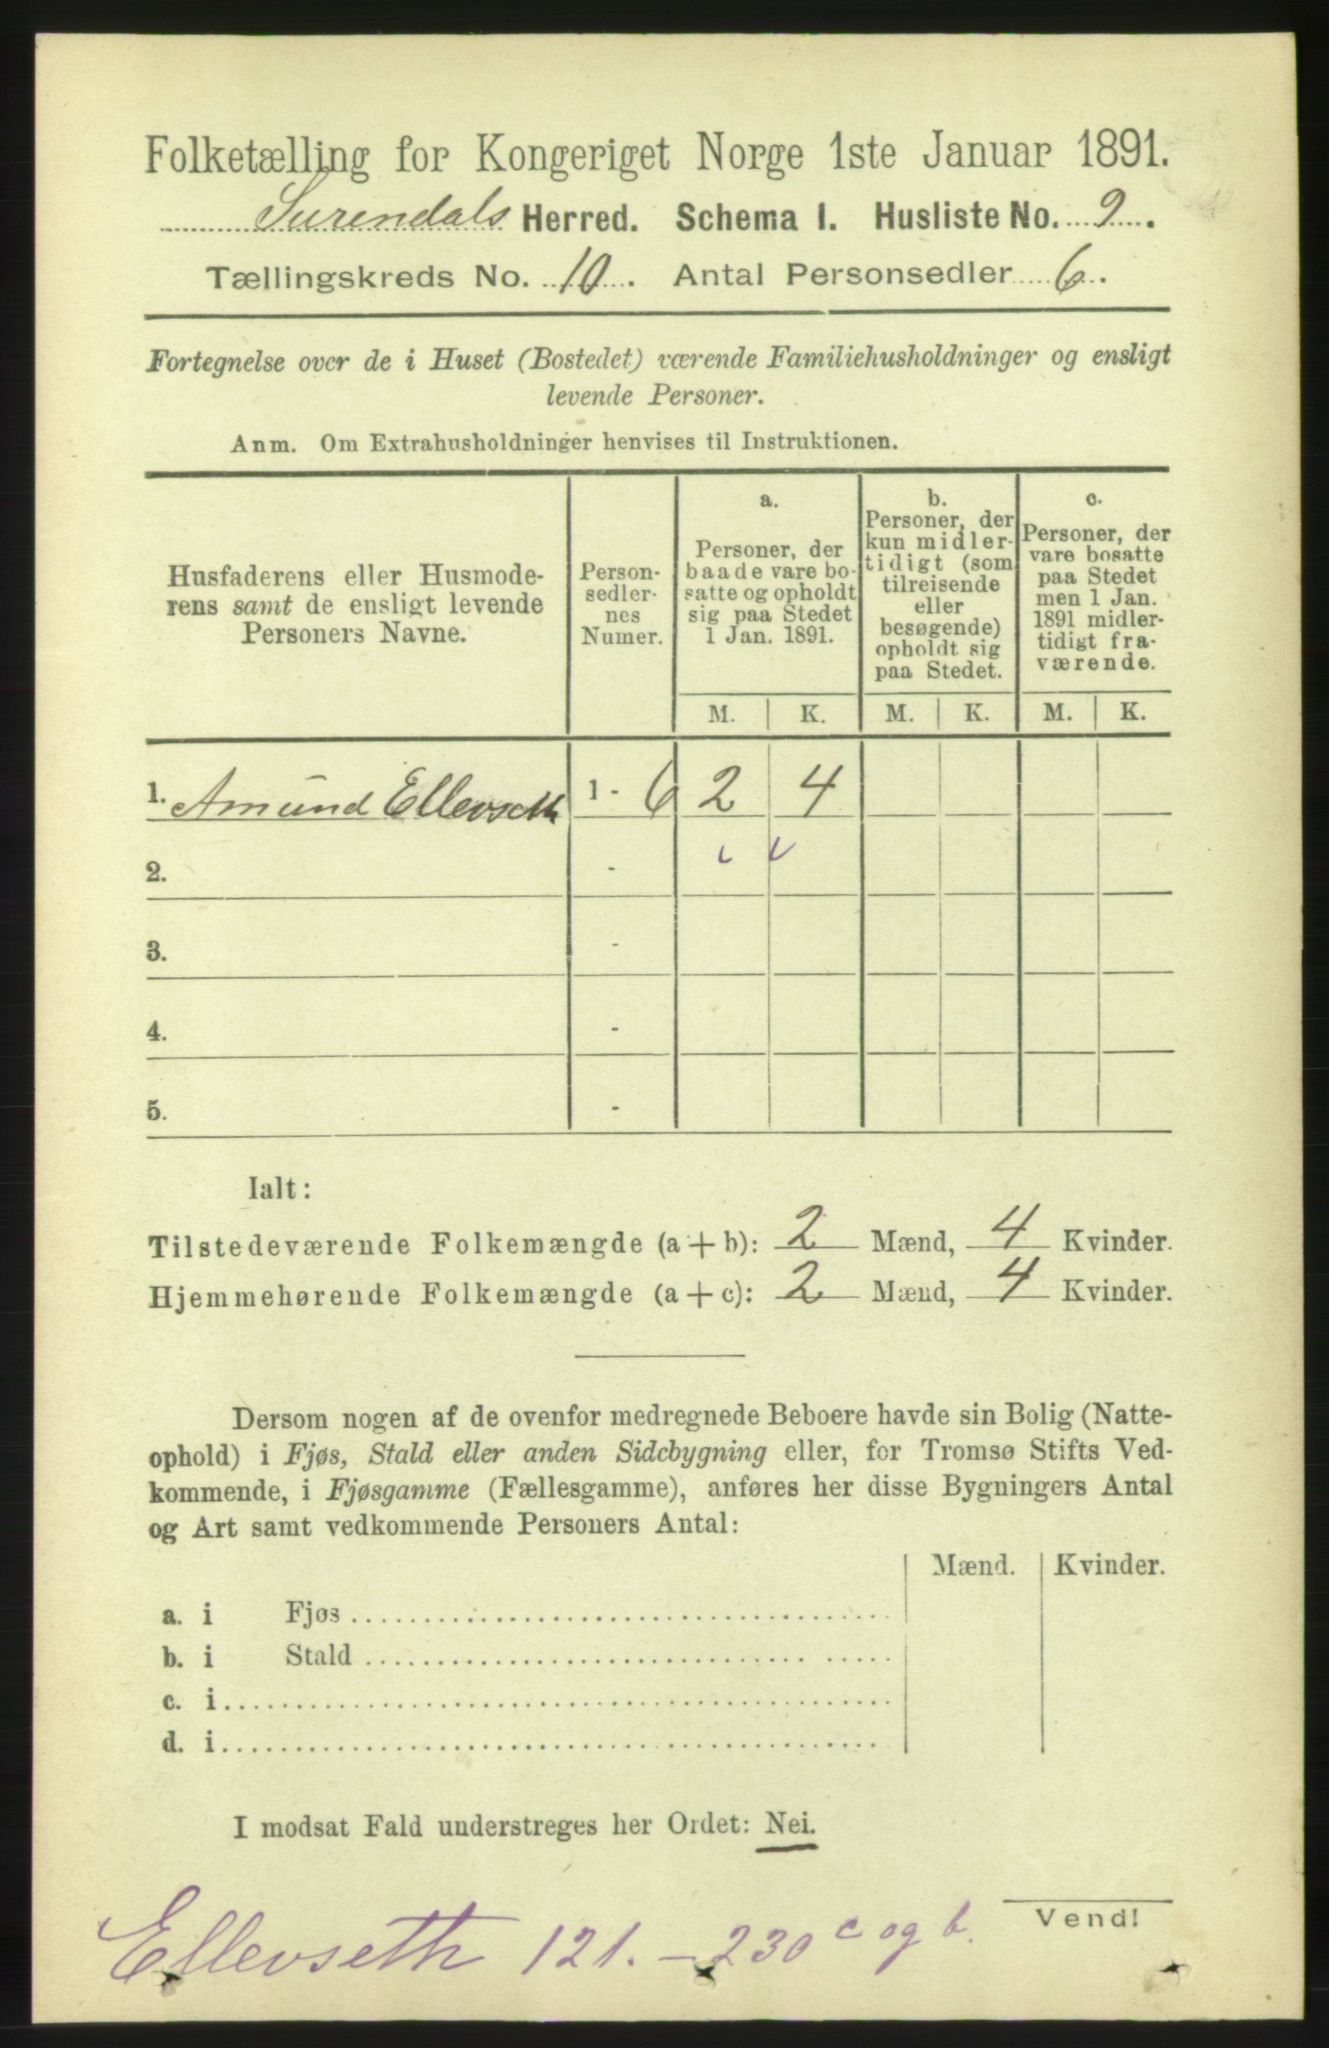 Folketælling for Kongeriget Norge 1ste Januar 1891.
Surendals Herred. Schema I. Husliste No. 9.
Tællingskreds No. 10. Antal Personsedler 6.
Fortegnelse over de i Huset (Bostedet) værende Familiehusholdninger og ensligt
levende Personer.
Anm. Om Extrahusholdninger henvises til Instruktionen.
Husfaderens eller Husmode-
rens samt de ensligt levende
Personers Navne.
Person-
sedler-
nes
Numer.
a.
Personer, der
baade vare bo-
satte og opholdt
sig paa Stedet
1 Jan. 1891.
b.
Personer, der
kun midler-
tidigt (som
tilreisende
eller
besøgende)
opholdt sig
paa Stedet.
c.
Personer, der
vare bosatte
paa Stedet
men 1 Jan.
1891 midler-
tidigt fra-
værende.
M. K. M. K. M. K.
1. Amund Ellevseth 1 - 6 2 4
2. -
3. -
4. -
5. -
Ialt:
Tilstedeværende Folkemængde (a + b): 2 Mænd, 4 Kvinder.
Hjemmehørende Folkemængde (a + c): 2 Mænd, 4 Kvinder.
Dersom nogen af de ovenfor medregnede Beboere havde sin Bolig (Natte-
ophold) i Fjøs, Stald eller anden Sidebygning eller, for Tromsø Stifts Ved-
kommende, i Fjøsgamme (Fællesgamme), anføres her disse Bygningers Antal
og Art samt vedkommende Personers Antal:
Mænd. Kvinder.
a. i Fjøs
b. i Stald
c. i
d. i
I modsat Fald understreges her Ordet: Nei.
Vend!
Ellevseth 121. - 230 c og b.